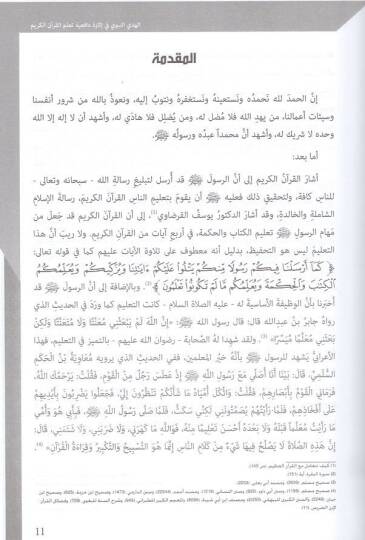 الهدي النبوي في إثارة دافعية تعلم القرآن الكريم
المقدمة
إنَّ الحمدَ لله نَحمدُه ونَستعينهُ ونَستغفرهُ ونتوبُ إليه، ونعوذُ بالله من شرور أنفسنا
وسيئات أعمالنا، من يهدِ الله فلا مُضل له، ومن يُضلِل فلا هاديَ له، وأشهد أن لا إله إلا الله
وحده لا شريك له، وأشهد أنَّ محمداً عبدُه ورسولُه ﷺ
أما بعد:
أشارَ القرآنُ الكريم إلى أنَّ الرسولَ ﷺ قد أُرسل لتبليغِ رسالةِ الله - سبحانه وتعالى -
للناسِ كافة، ولتحقيقِ ذلك فعليه ﷺ أن يقومَ بتعليمِ الناسِ القرآنَ الكريمَ، رسالةَ الإسلامِ
الشاملةِ والخالدةِ، وقد أشارَ الدكتورُ يوسفُ القرضاوي(1)، إلى أن القرآن الكريم قد جَعلَ من
مَهامِ الرسولِ ﷺ تعليمَ الكتابِ والحكمة، في أربعِ آياتٍ من القرآنِ الكريم. ولا ريبَ أنَّ هذا
التعليمَ ليس هو التحفيظ، بدليلِ أنه معطوف على تلاوةِ الآياتِ عليهم كما في قوله تعالى:
﴿ كَمَا أَرْسَلْنَا فِيكُمْ رَسُولًا مِنْكُمْ يَتْلُوا عَلَيْكُمْ ءَايَتِنَا وَيُزَكِّيكُمْ وَيُعَلِّمُكُمُ
الْكِتَبَ وَالْحِكْمَةَ وَيُعَلِّمُكُمْ مَا لَمْ تَكُونُوا تَعْلَمُونَ ﴾(2). وبالإضافةِ إلى أنَّ الرسولَ ﷺ قد
أخبرَنا بأنَّ الوظيفةَ الأساسيةَ له - عليه الصلاة السلام - كانت التعليم كما وردَ في الحديثِ الذي
رواهُ جابرُ بنُ عبدِالله قال: قال رسول الله ﷺ: «إنَّ اللهَ لَمْ يَبْعَثْنِي مُعَنِّتًا وَلَا مُتَعَنِّتًا وَلَكِنْ
بَعَثَنِي مُعَلِّمًا مُيَسِّرًا»(3)، ولقد شهِدَ لهُ الصَّحابةُ - رضوان الله عليهم - بالتميزِ في التعليم، فهذا
الأعرابيُّ يَشهدُ للرسولِ ﷺ بأنَّهُ خيرُ المعلمين، ففي الحديثِ الذي يرويه مُعَاوِيَةُ بْنُ الْحَكَمِ
السُّلَمِيُّ، قَالَ: بَيْنَا أَنَا أُصَلِّي مَعَ رَسُولِ اللهِ ﷺ إِذْ عَطَسَ رَجُلٌ مِنْ الْقَوْمِ، فَقُلْتُ: يَرْحَمُكَ اللهُ،
فَرَمَانِي الْقَوْمُ بِأَبْصَارِهِمْ، فَقُلْتُ: وَاثُكْلَ أُمِّيَاهُ مَا شَأْنُكُمْ تَنْظُرُونَ إِلَيَّ، فَجَعَلُوا يَضْرِبُونَ بِأَيْدِيهِمْ
عَلَى أَفْخَاذِهِمْ، فَلَمَّا رَأَيْتُهُمْ يُصَمِّتُونَنِي لَكِنِّي سَكَتُّ، فَلَمَّا صَلَّى رَسُولُ اللهِ ﷺ، فَبِأَبِي هُوَ وَأُمِّي
مَا رَأَيْتُ مُعَلِّمًا قَبْلَهُ وَلَا بَعْدَهُ أَحْسَنَ تَعْلِيمًا مِنْهُ، فَوَاللهِ مَا كَهَرَنِي، وَلَا ضَرَبَنِي، وَلَا شَتَمَنِي، قَالَ:
إِنَّ هَذِهِ الصَّلَاةَ لَا يَصْلُحُ فِيهَا شَيْءٌ مِنْ كَلَامِ النَّاسِ إِنَّمَا هُوَ التَّسْبِيحُ وَالتَّكْبِيرُ وَقِرَاءَةُ الْقُرْآنِ»(4).
(1) كيف نتعامل مع القرآن العظيم، ص
(2) سورة البقرة آية (151).
(3) صحيح مسلم
(4) صحيح مسلم
11